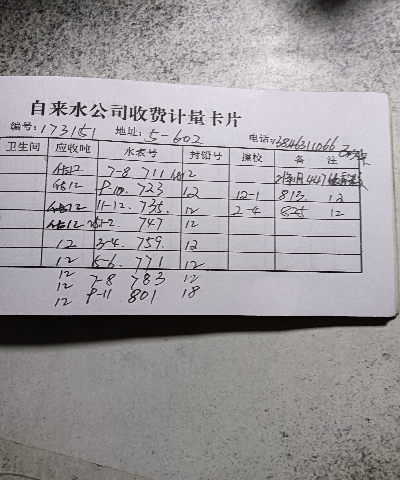 自来水公司收费计量卡片
编号:173151 地址:5-602 电话:13846311066
卫生间 应收吨 水表号 封铅号 撞校 备 注
估12 7-8 711 12
估12 9-10. 723 12 12-1 813. 12
估12 11-12. 735. 12 2-4 825 12
估12 1-2. 747 12
12 3-4. 759. 12
12 5-6. 771 12
12 7-8 783 12
12 9-11 801 18